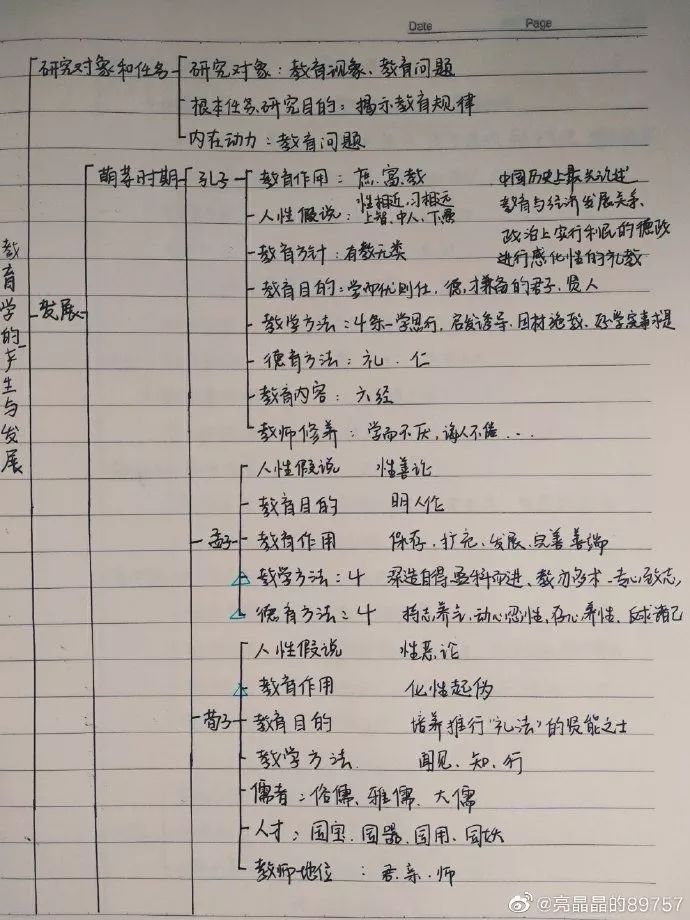 Date Page
研究对象和任务 研究对象：教育现象、教育问题
根本任务、研究目的：揭示教育规律
内在动力：教育问题
教育学的产生与发展
发展
萌芽时期
孔子
教育作用：庶、富、教
中国历史上最先论述
教育与经济发展关系、
政治上实行利民的德政
进行感化性的礼教
人性假说：性相近，习相远
上智、中人、下愚
教育方针：有教无类
教育目的：学而优则仕，德、才兼备的君子、贤人
教学方法：4条—学思行、启发诱导、因材施教、好学实事求是
德育方法：礼、仁
教育内容：六经
教师修养：学而不厌，诲人不倦...
孟子
人性假说 性善论
教育目的 明人伦
教育作用 保存、扩充、发展、完善善端
教学方法：4 深造自得、盈科而进、教亦多术、专心致志
德育方法：4 持志养气、动心忍性、存心养性、反求诸己
荀子
人性假说 性恶论
教育作用 化性起伪
教育目的 培养推行“礼法”的贤能之士
教学方法 闻见、知、行
儒者：俗儒、雅儒、大儒
人才：国宝、国器、国用、国妖
教师地位：君、亲、师
@亮晶晶的89757